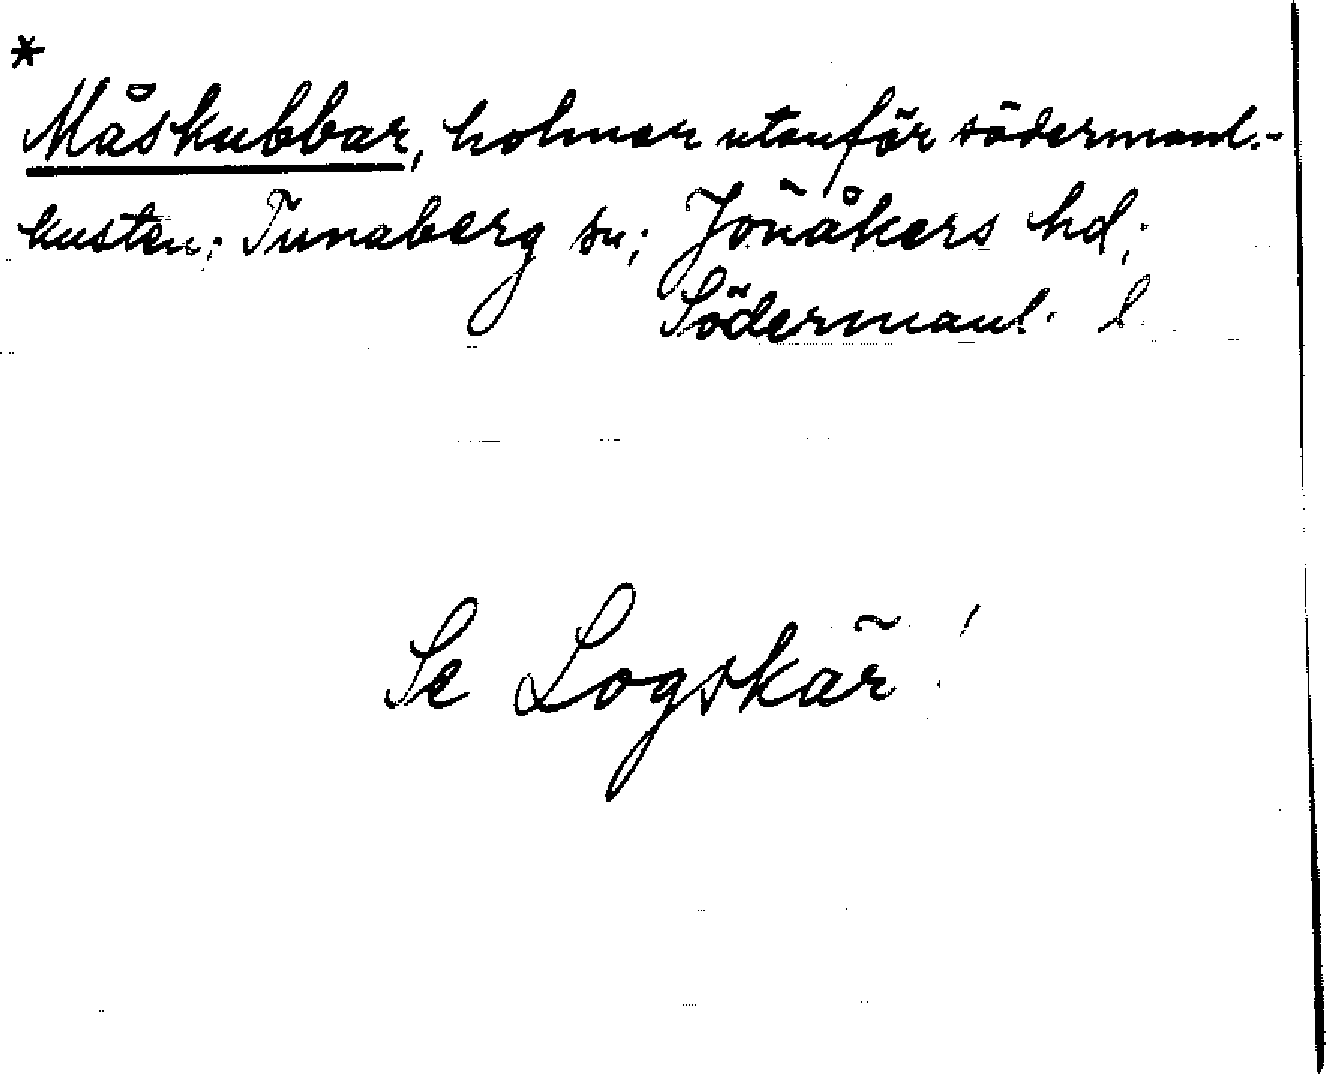 *
Måskubbar, holmar utanför södermanl.-
kusten; Tunaberg sn; Jönåkers hd;
Södermanl. l.
Se Logskär!